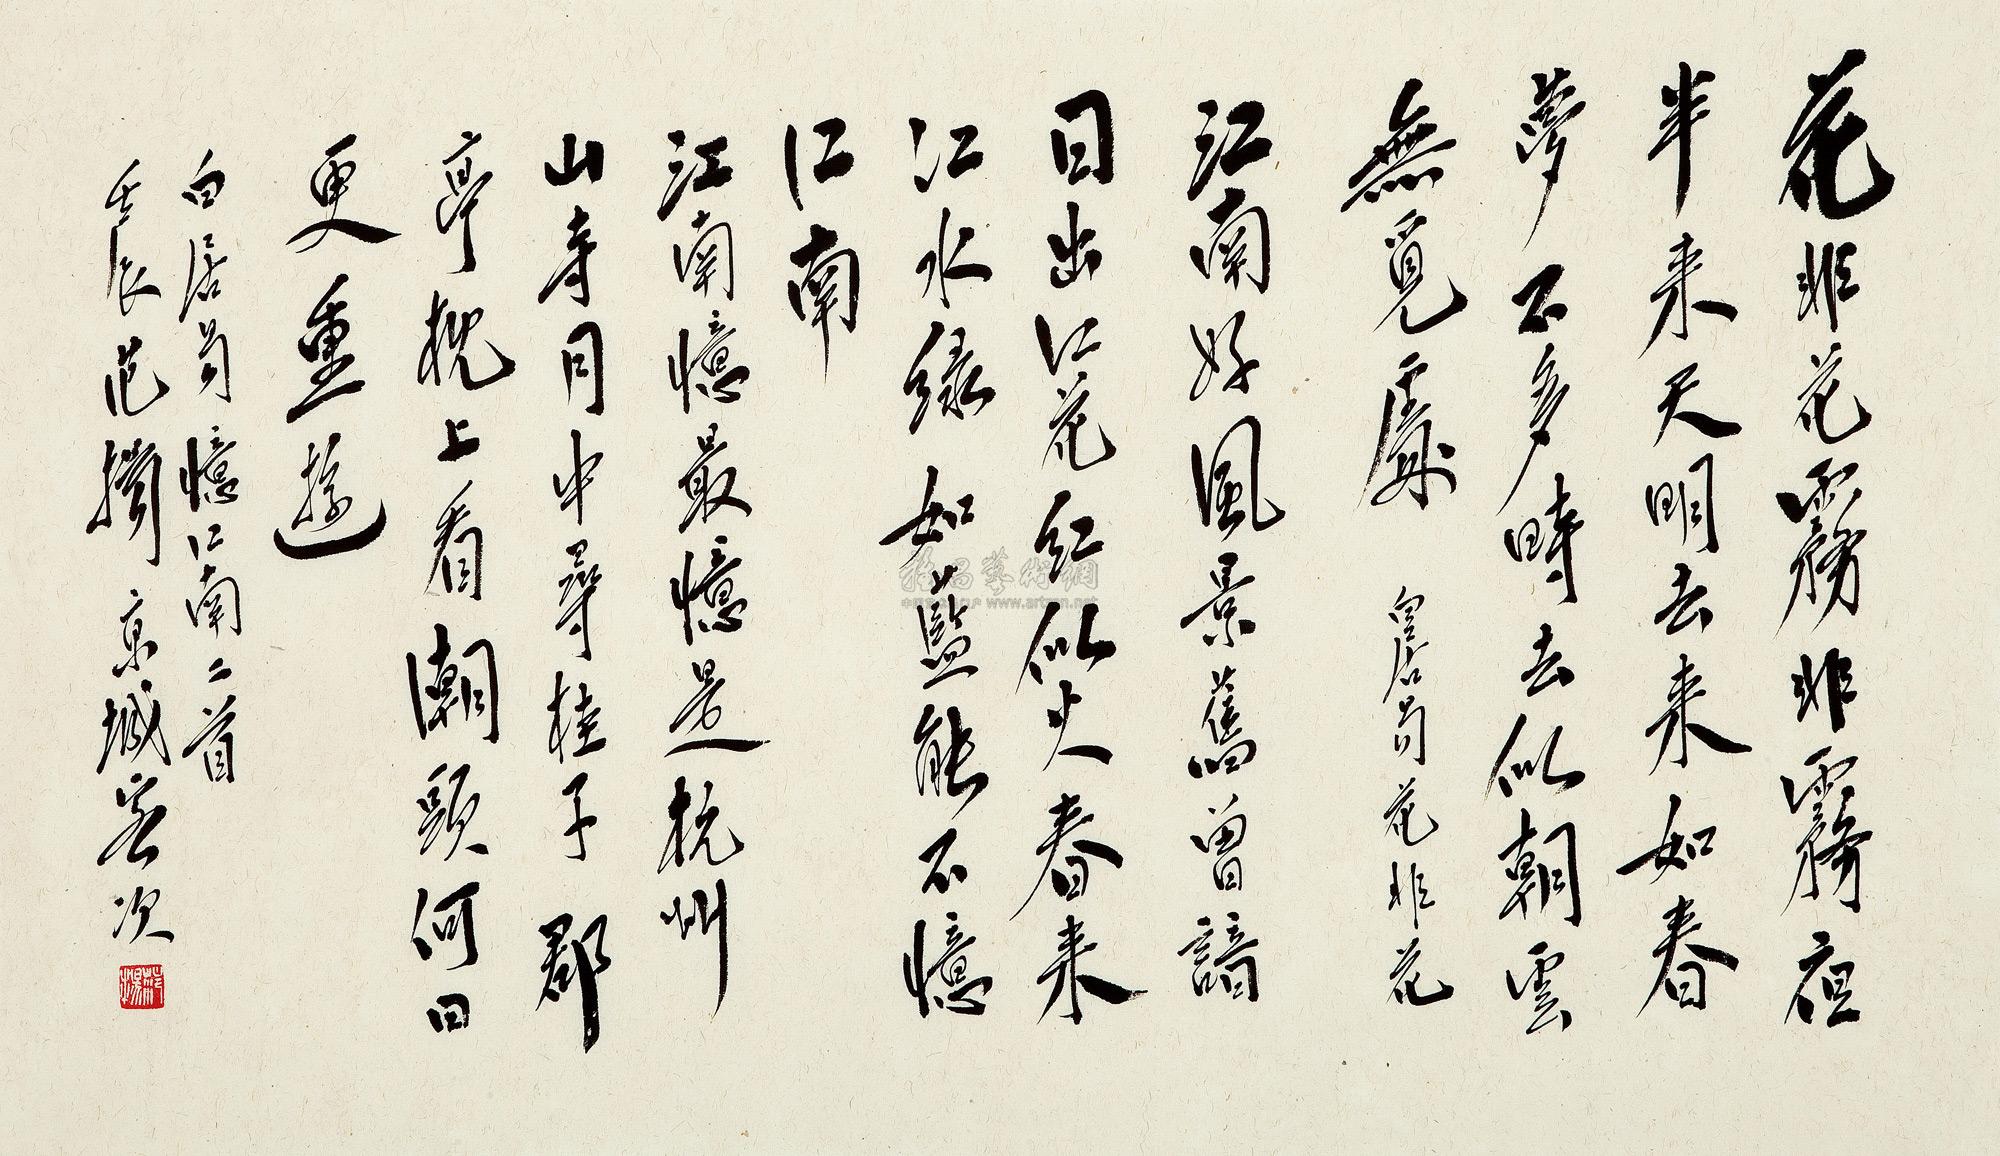 花非花霧非霧夜
半来天明去来如春
夢不多時去似朝雲
無覓處
白居易花非花
江南好風景舊曾諳
日出江花红似火春来
江水绿如藍能不憶
江南
江南憶最憶是杭州
山寺月中尋桂子郡
亭枕上看潮頭何日
更重遊
白居易憶江南二首
壬辰范揚京城客次
雅昌藝術網
www.artron.net